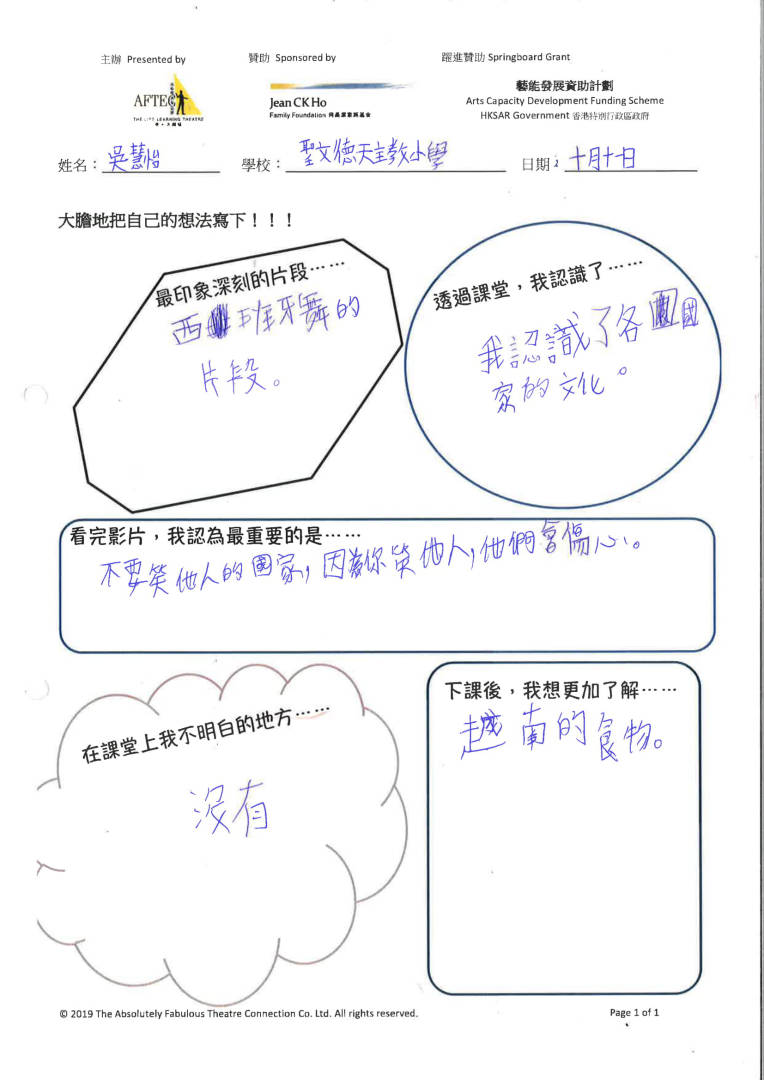 主辦 Presented by
贊助 Sponsored by
躍進贊助 Springboard Grant
AFTEC
THE LIFE LEARNING THEATRE
Jean CK Ho
Family Foundation 何晶潔家族基金
藝能發展資助計劃
Arts Capacity Development Funding Scheme
HKSAR Government 香港特別行政區政府
姓名：吳慧怡
學校：聖文德天主教小學
日期：十月十日
大膽地把自己的想法寫下！！！
最印象深刻的片段……
西班牙舞的
片段。
透過課堂，我認識了……
我認識了各國
家的文化。
看完影片，我認為最重要的是……
不要笑他人的國家，因為你笑他人，他們會傷心。
在課堂上我不明白的地方……
沒有
下課後，我想更加了解……
越南的食物。
© 2019 The Absolutely Fabulous Theatre Connection Co. Ltd. All rights reserved.
Page 1 of 1